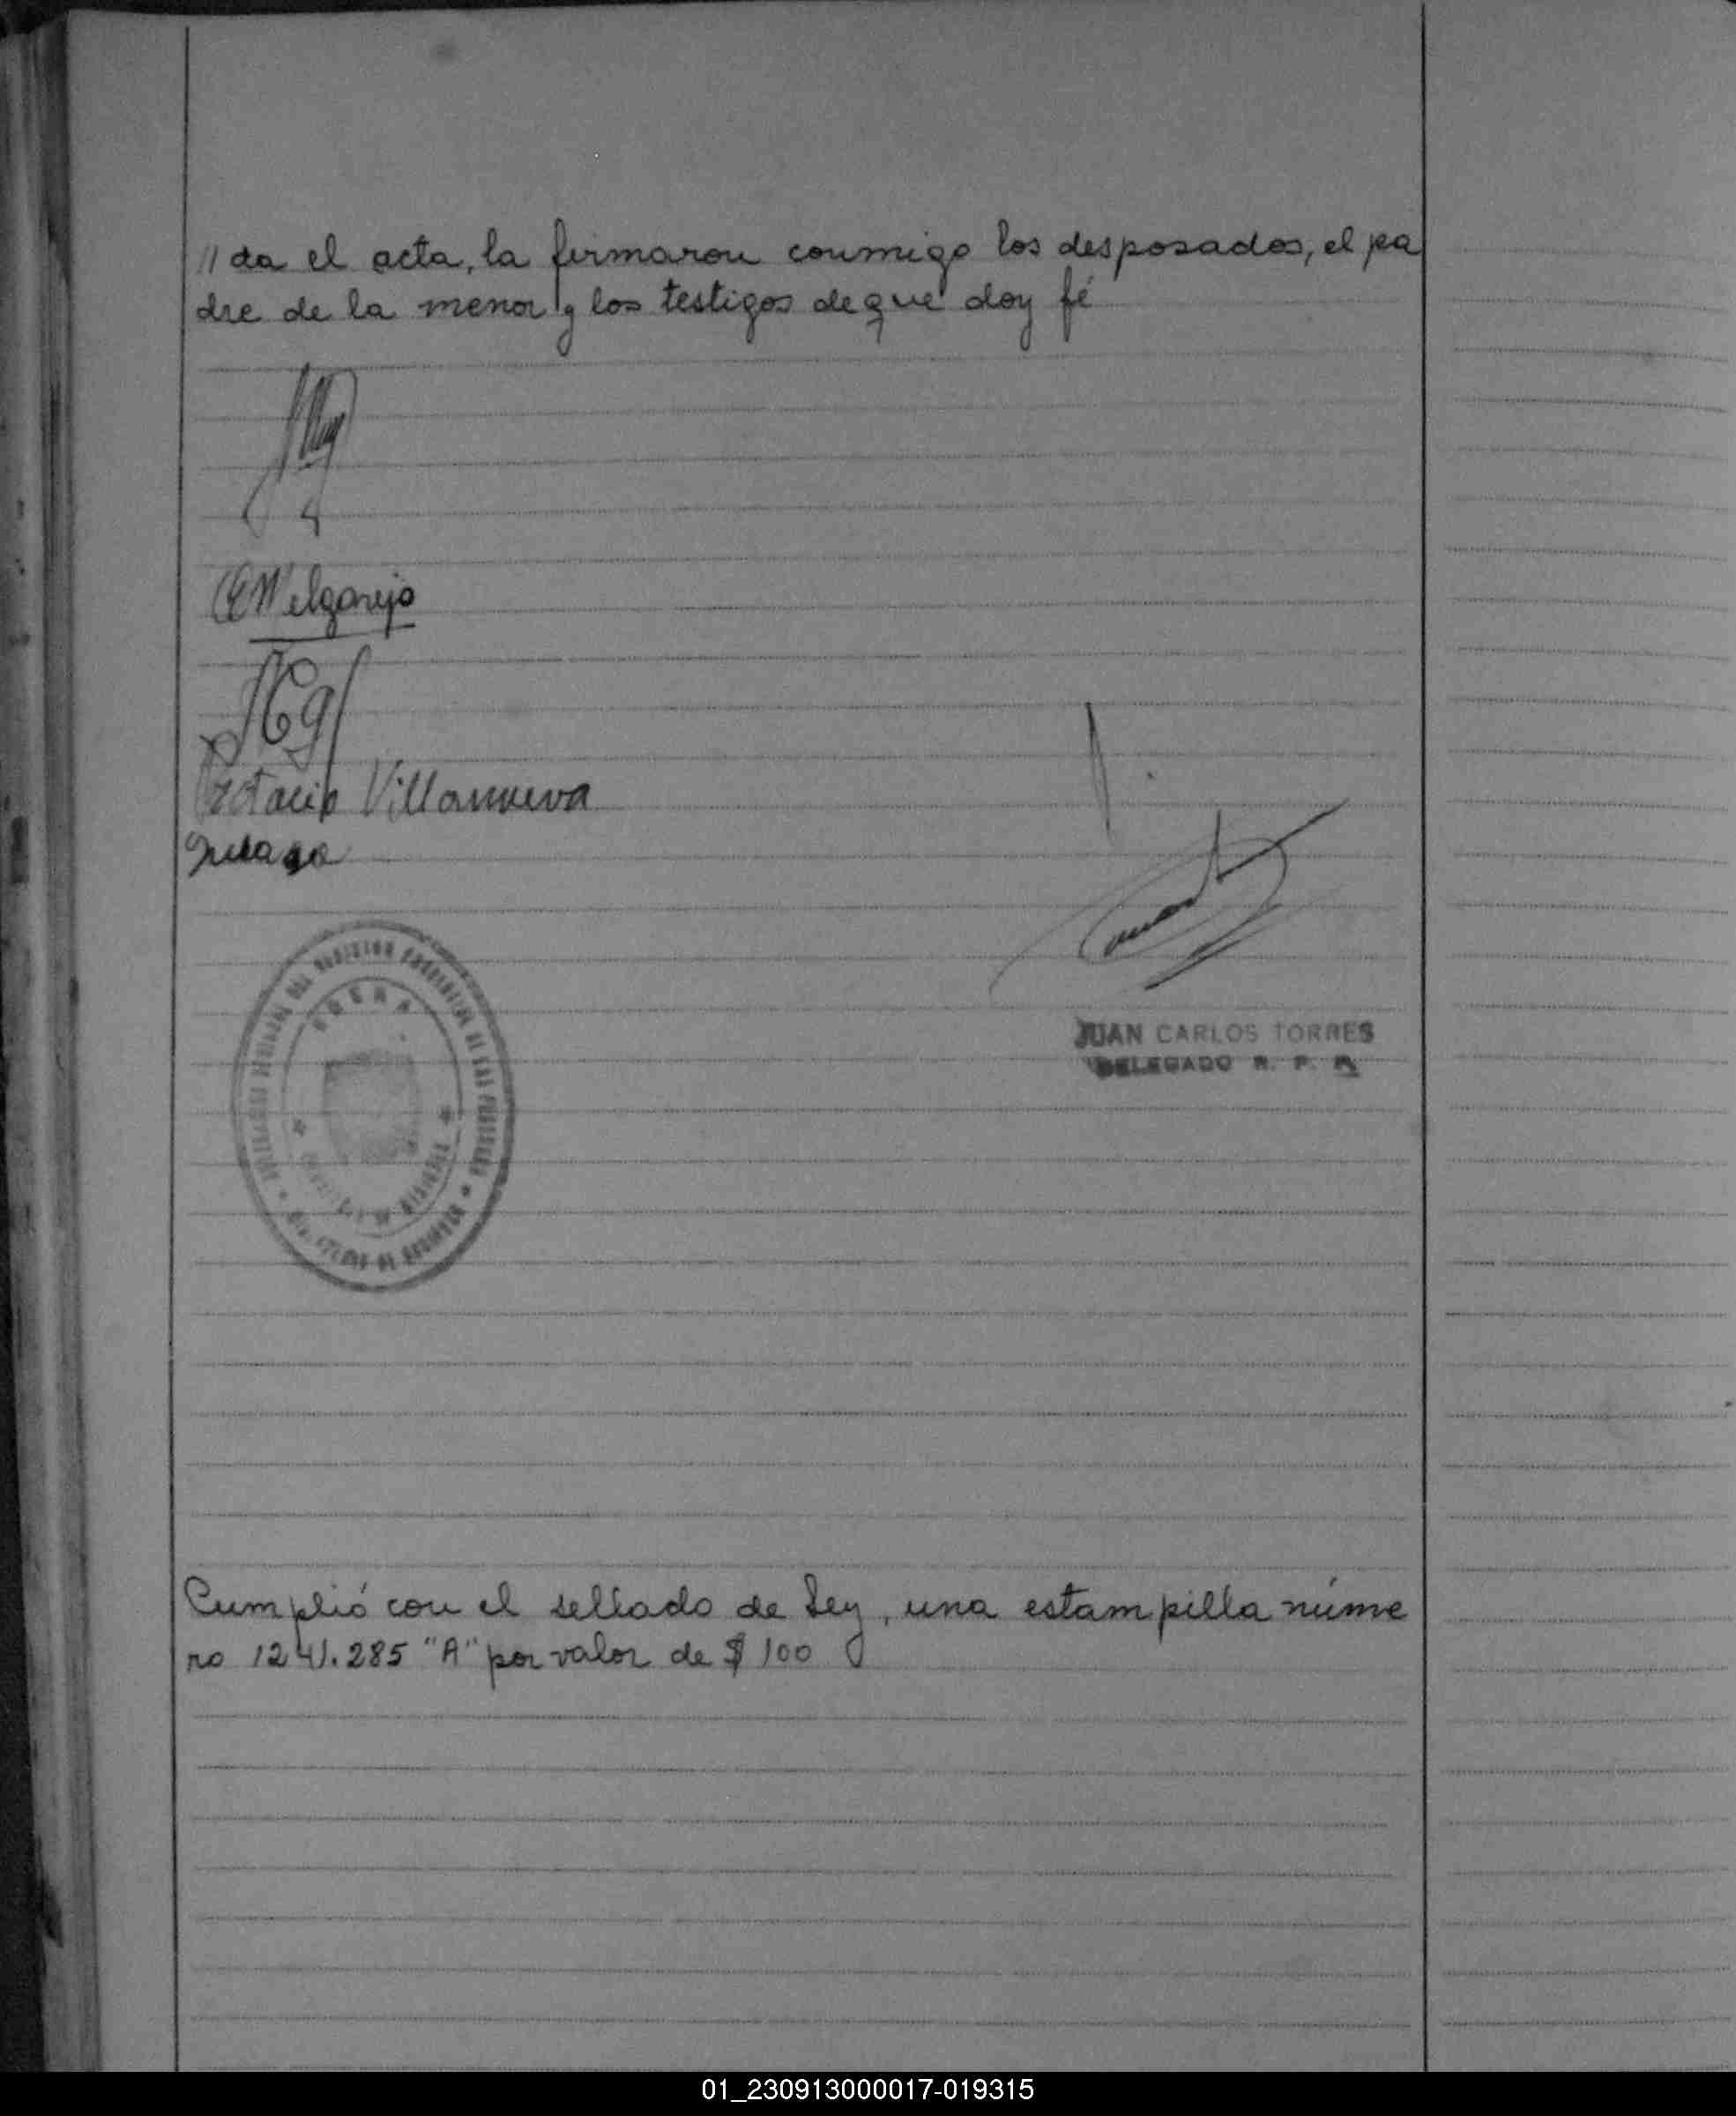 // da el acta, la firmaron conmigo los desposados, el pa
dre de la menor y los testigos de que doy fé
Melgarejo
Villanueva
JUAN CARLOS TORRES
DELEGADO R. P. P.
Cumplió con el sellado de Ley, una estampilla núme
ro 1241.285 "A" por valor de $ 100
01_230913000017-019315